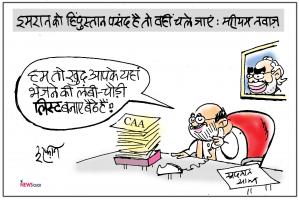 इमरान को हिंदुस्तान पसंद है तो वहीं चले जाएं : मरियम नवाज
हम तो खुद आपके यहां
भेजने की लंबी-चौड़ी
लिस्ट बनाए बैठे हैं?
CAA
NEWS